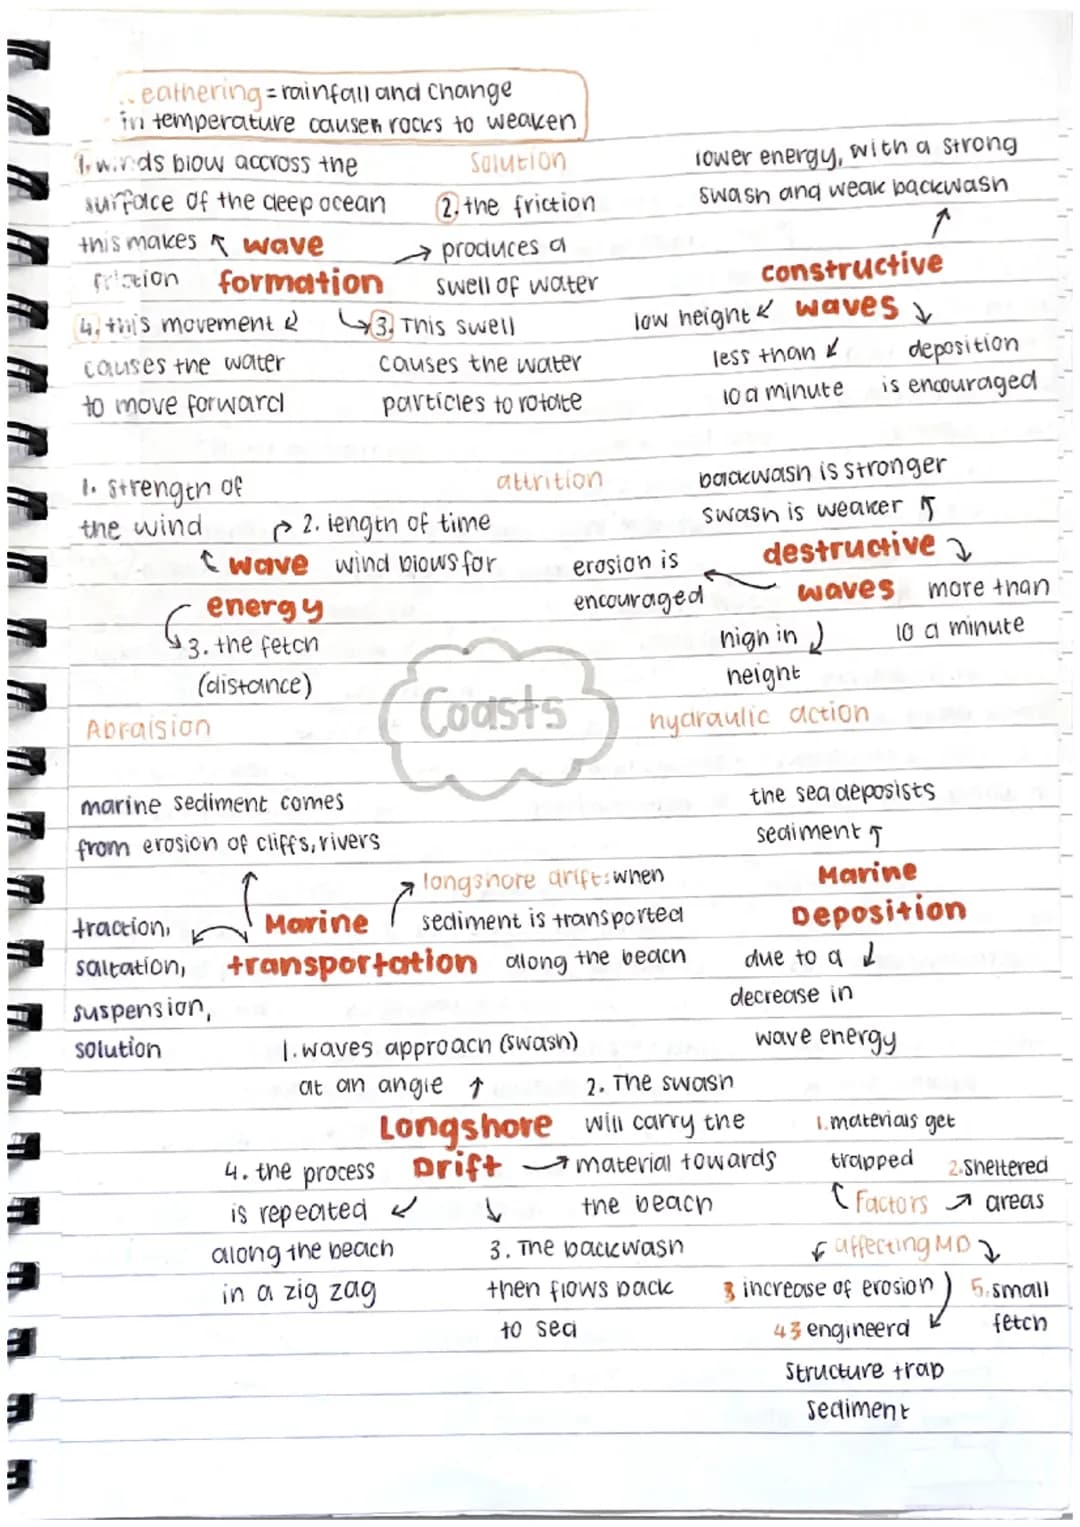 eathering = rainfall and change
in temperature causen rocks to weaken
1. winds blow accross the
surface of the deep ocean
this makes
friction
wave
formation
Solution
2. the friction
produces a
swell of water
3. This swell
causes the water
particles to rotate
4. this movement
causes the water
to move forward
lower energy, with a strong
swash and weak backwash
constructive
waves
low height
less than
10 a minute
deposition
is encouraged
1. strength of
the wind
2. length of time
wind blows for
wave
energy
3. the fetch
(distance)
attrition
backwash is stronger
swash is weaker
destructive
waves
erosion is
encouraged
more than
10 a minute
high in
height
Coasts
Abraision
hydraulic action
marine sediment comes
from erosion of cliffs, rivers
longshore drift: when
sediment is transported
along the beach
Marine
transportation
traction,
saltation,
suspension,
solution
the sea deposists
sediment
Marine
Deposition
due to a
decrease in
wave energy
1. waves approach (swash)
at an angle
Longshore
Drift
2. The swash
will carry the
material towards
the beach
3. The backwash
then flows back
to sea
4. the process
is repeated
along the beach
in a zig zag
1. materials get
trapped
2. Sheltered
areas
Factors
affecting MD
3 increase of erosion
43 engineerd
structure trap
sediment
5. small
fetch